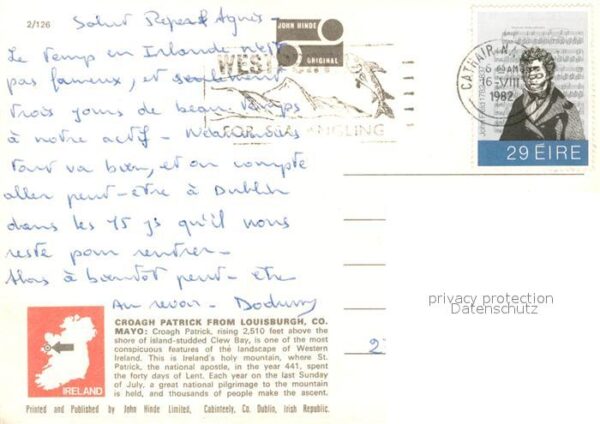 2/126
Salut Agnès -
JOHN HINDE
ORIGINAL
Le temp en Irlande n'est
pas fameux, et seulement
trois jours de beau temps
à notre actif - Néanmoins
tout va bien, et on compte
aller peut-être à Dublin
dans les 15 js qu'il nous
reste pour rentrer -
Alors à bientôt peut-être
Au revoir -
WESTPORT
FOR SEA ANGLING
CATHAIR NA
6 30AM
6-VIII
1982
John Field 1782-1837
29 ÉIRE
privacy protection
Datenschutz
IRELAND
CROAGH PATRICK FROM LOUISBURGH, CO.
MAYO: Croagh Patrick, rising 2,510 feet above the
shore of island-studded Clew Bay, is one of the most
conspicuous features of the landscape of Western
Ireland. This is Ireland's holy mountain, where St.
Patrick, the national apostle, in the year 441, spent
the forty days of Lent. Each year on the last Sunday
of July, a great national pilgrimage to the mountain
is held, and thousands of people make the ascent.
Printed and Published by John Hinde Limited, Cabinteely, Co. Dublin, Irish Republic.